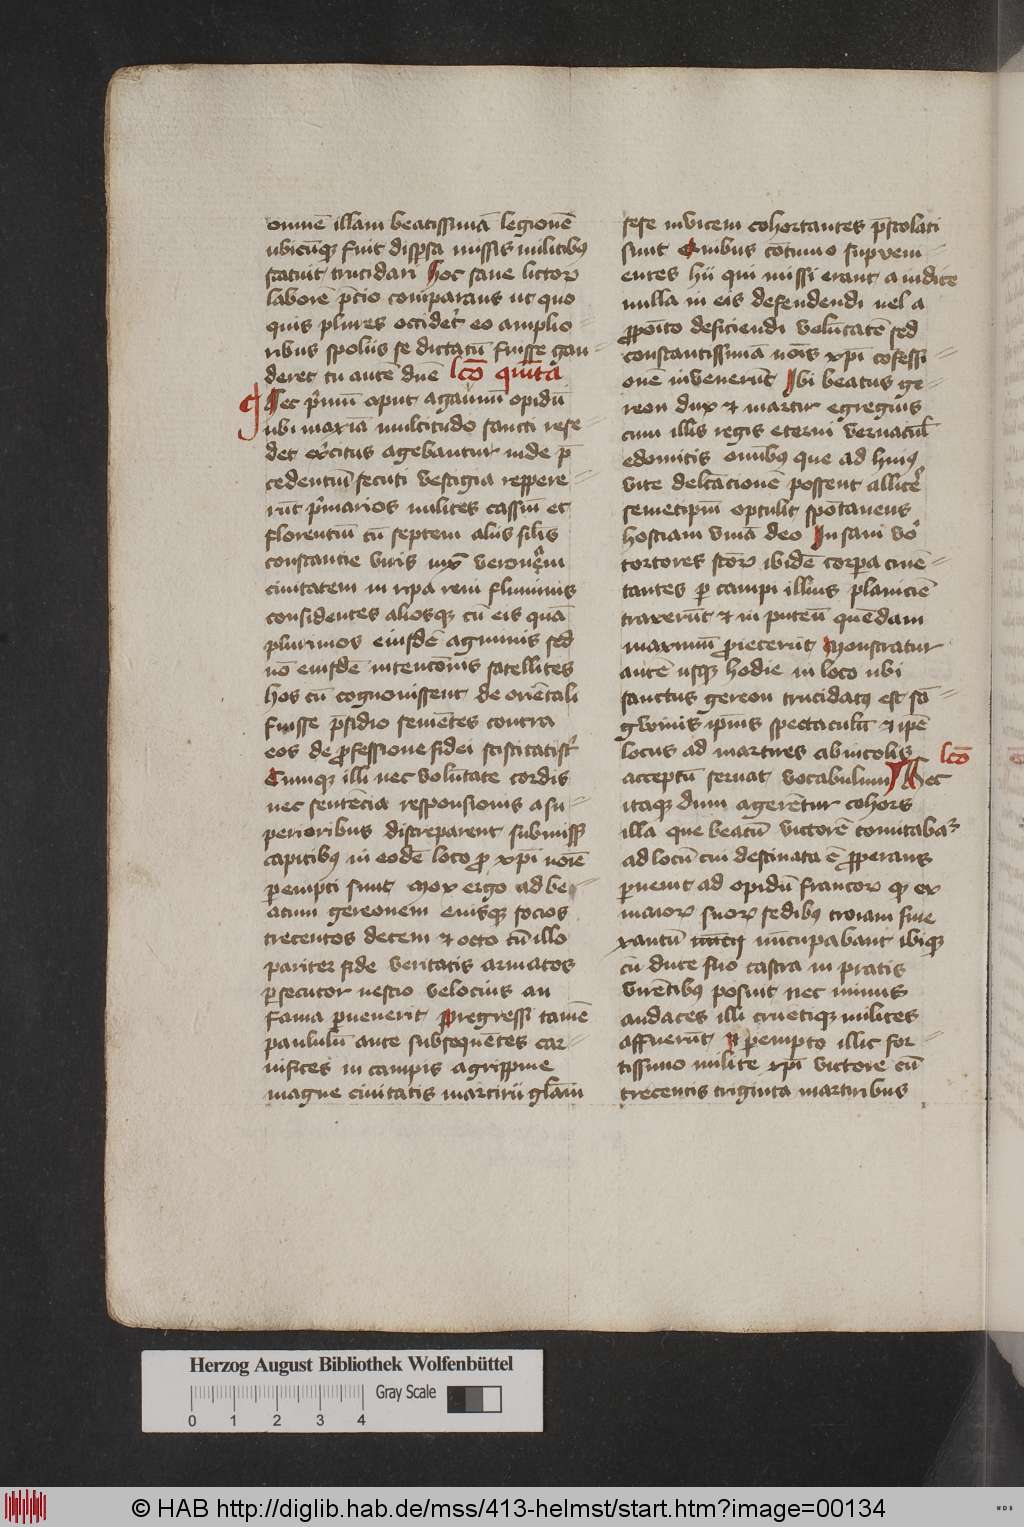 omnē illam beatissimā legionē
ubicūqꝫ fuit disꝑsa missis militibꝰ
statuit trucidari Hoc sane lictoꝝ
laborē p̄cio comparans ut quo
quis plures occideret eo amplio-
ribus spoliis se dictatū fuisse gau-
deret tu autē dn̄e lcō quinta
Hec primū aput agaunū opidū
ubi maxīa multitudo sancti rese-
det exercitus agebantur inde p̄
cedentiū secuti vestigia reppere-
rūt p̄marios milites cassiū et
florentiū cū septem aliis silis
constantie viris iuxᵃ veronēm
ciuitatem in ripa reni fluminis
considentes aliosqꝫ cū eis quā
plurimos eiusdē agminis sed
nō eiusdē intencionis satellites
hos cū cognouissent de oriētali
fuisse p̄sidio semētes contra
eos de ꝓfessione fidei sciscitātur
Cumqꝫ illi nec volūtate cordis
nec sentēcia responsionis a su-
perioribus discreparent submissꝭ
capitibꝰ in eodē loco ꝓ xp̄i noīe
ꝑempti sunt Mox ergo ad be-
atum gereonem eiusqꝫ socios
trecentos decem et octo cū illo
pariter fide veritatis armatos
ꝑsecutor nescio velocius an
fama ꝑuenerit Progressi tamē
paululū ante subsequētes car-
nifices in campis agrippine
magne ciuitatis martirii glām
sese invicem cohortantes p̄stolati
sunt Quibus cōtinuo supveni-
entes hii qui missi erant a iudice
nulla in eis defendendi uel a
ꝓpoīto deficiendi volūtatē sed
constantissimā noīs xp̄i cōfessi-
onē invenerūt Ibi beatus ge-
reon dux et martir egregius
cum illis regis eterni vernacul̄
edomitis omībꝰ que ad huiꝰ
vite delc̄acionē possent allicere
semetipm̄ optulit spōtaneus
hostiam vivā deo Insani vo
tortores sctōꝝ ibidē corꝑa cruē-
tantes ꝑ campi illius planiciē
traxerūt et in puteū quēdam
maximū ꝓiecerūt Monstratur
autē usqꝫ hodie in loco ubi
sanctus gereon trucidatꝰ est sā-
gwinis ipīus spectaculū et ipē
locus ad martires ab incolis lcō
acceptū seruat vocabulum Hec
itaqꝫ dum agerētur cohors
illa que beatū victorē comitabaꝛ
ad locū cui destinata ē ꝓperans
ꝑuenit ad opidū francoꝝ qꝫ ex
maioꝝ suoꝝ sedibꝰ troiam siue
xantū nūcupabant ibiqꝫ
cū duce suo castra in pratis
virētibꝰ posuit nec minus
audaces illi cruētiqꝫ milites
affuerūt Et ꝑempto illic for-
tissimo milite xp̄i victore cū
trecentis triginta martiribus
Herzog August Bibliothek Wolfenbüttel
Gray Scale
0 1 2 3 4
© HAB http://diglib.hab.de/mss/413-helmst/start.htm?image=00134